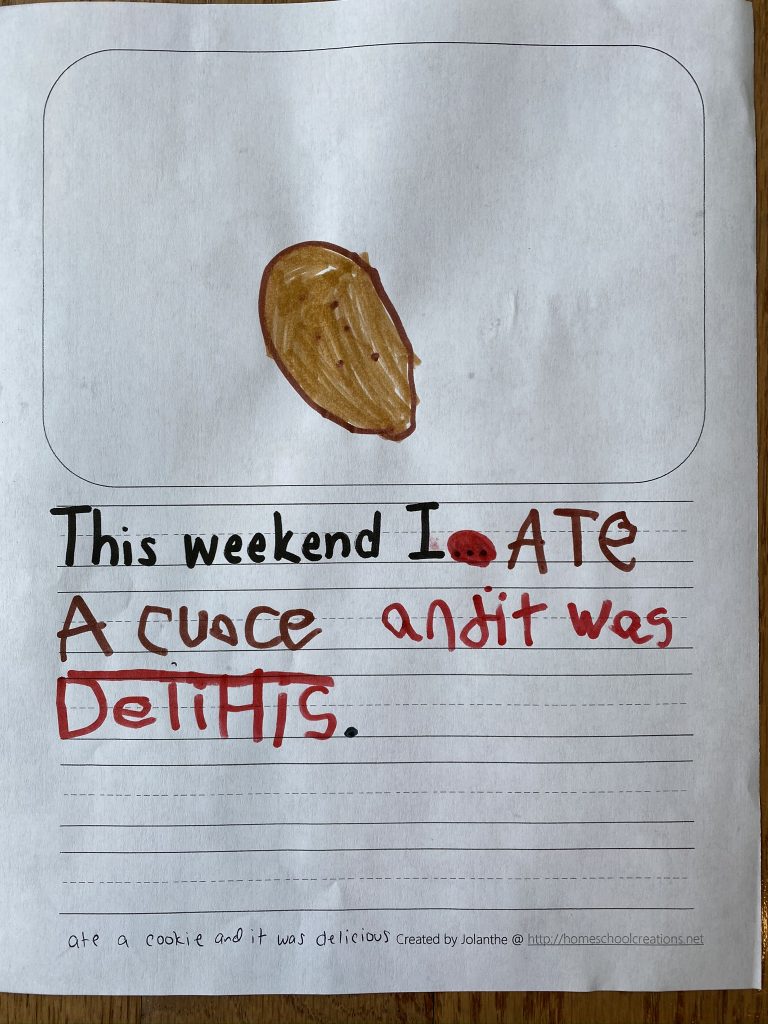 This weekend I... ATE
A cuoce andit was
DeliHis.
ate a cookie and it was delicious Created by Jolanthe @ http://homeschoolcreations.net